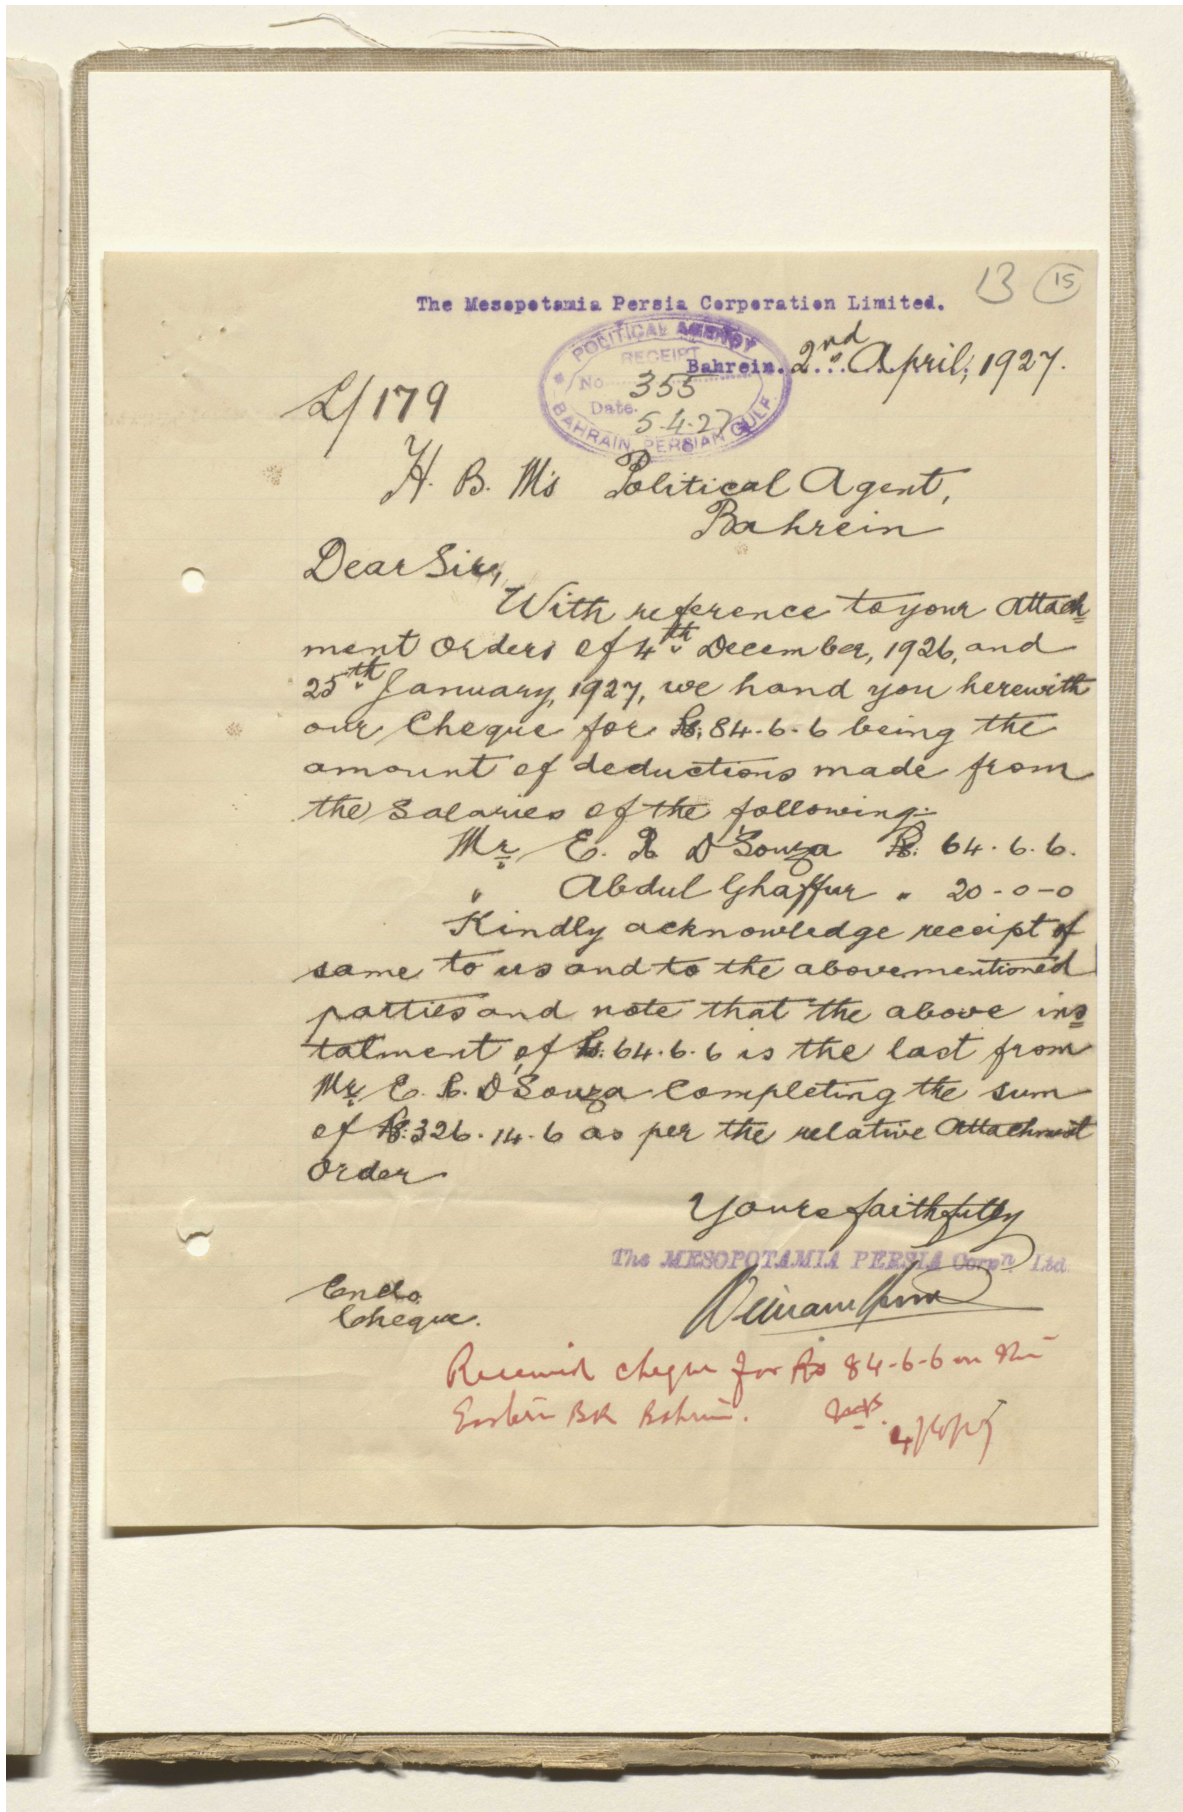 13 15
The Mesopotamia Persia Corporation Limited.
POLITICAL AGENCY
RECEIPT
Bahrein. 2nd April, 1927.
No 355
Date. 5.4.27
BAHRAIN PERSIAN GULF
L/179
H. B. M's Political Agent,
Bahrein
Dear Sir,
With reference to your Attach-
ment Orders of 4th December, 1926, and
25th January, 1927, we hand you herewith
our Cheque for Rs. 84-6-6 being the
amount of deductions made from
the Salaries of the following:-
Mr E. R D'Souza Rs. 64. 6. 6.
" Abdul Ghaffur " 20-0-0
Kindly acknowledge receipt of
same to us and to the abovementioned
parties and note that the above ins-
talment of Rs. 64. 6. 6 is the last from
Mr. E. R. D'Souza completing the sum
of Rs. 326. 14. 6 as per the relative Attachment
Order
Yours faithfully
The MESOPOTAMIA PERSIA Corpn. Ltd
Enclo.
Cheque.
Received cheque for Rs 84-6-6 on the
Eastern Bk Bahrein.